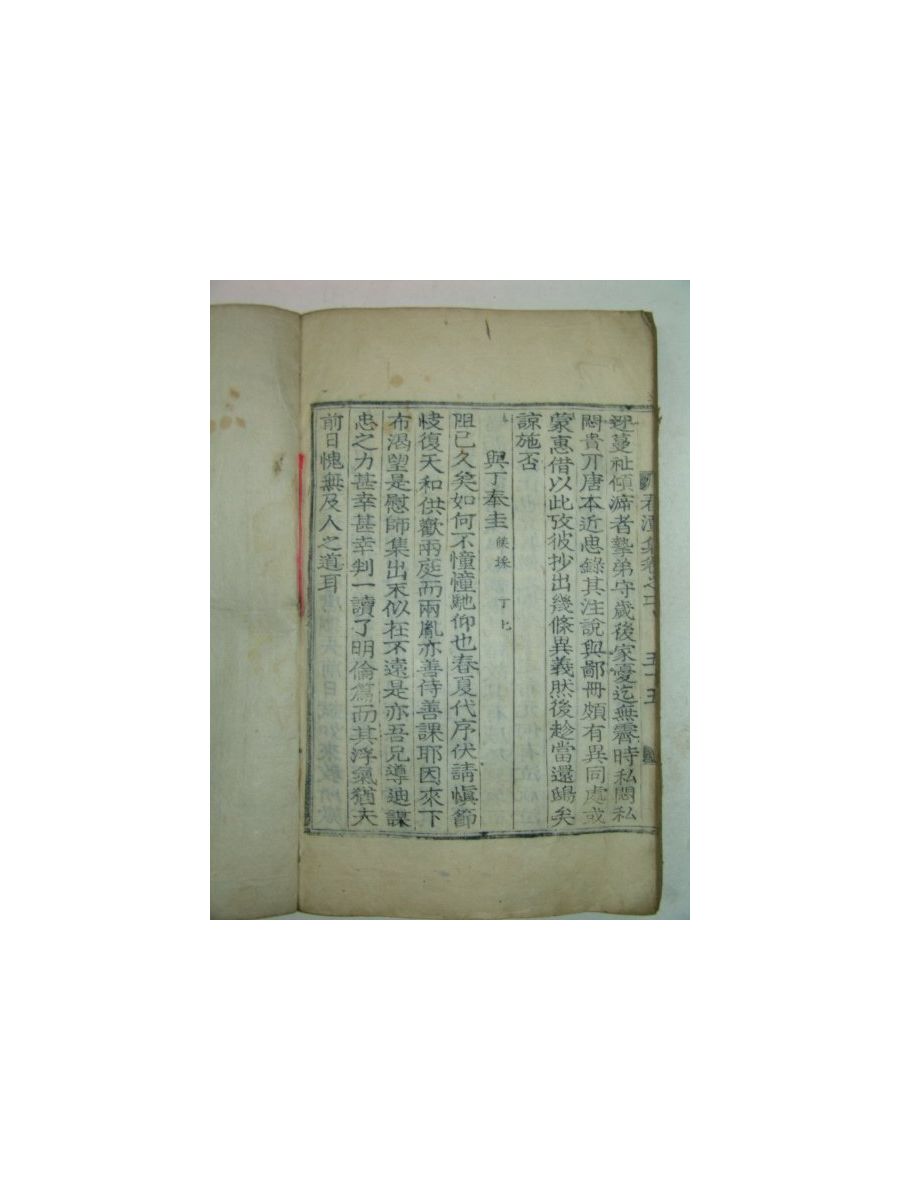 蔓祉傾溯者摯弟守歲後家憂迄無霽時私悶私
悶貴丌唐本近思錄其注說與鄙冊頗有異同處或
蒙惠借以此攷彼抄出幾條異義然後趁當還鴟矣
諒施否
與丁奉圭
阻已久矣如何不憧憧馳仰也春夏代序伏請愼節
復天和供歡兩庭而兩胤亦善侍善課耶因來下
布渴望是慰師集出末似在不遠是亦吾兄導迪謀
忠之力甚幸甚幸判一讀了明倫篇而其浮氣猶夫
前日愧無及人之道耳
集卷之
五十五